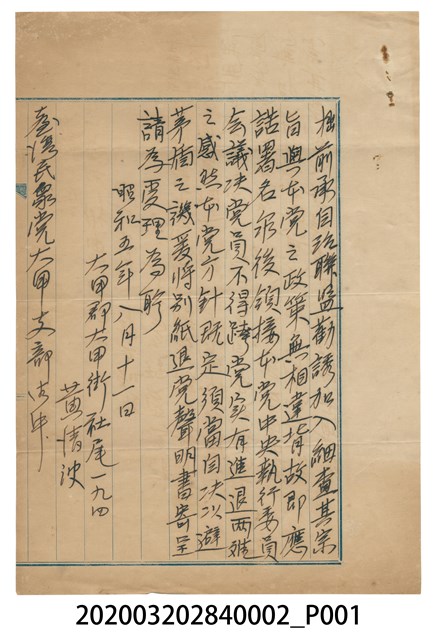 拙前承自治聯盟勸誘加入細查其宗
旨與本党之政策無相違背故即應
諾署名爾後領接本党中央執行委員
会議決党員不得跨党実有進退両難
之感然本党方針既定須當自決以避
茅楯之譏爰将別紙退党聲明書寄呈
請為受理為盼
昭和五年八月十一日
大甲郡大甲街社尾一九四
黄清波
臺湾民衆党大甲支部御中
202003202840002_P001